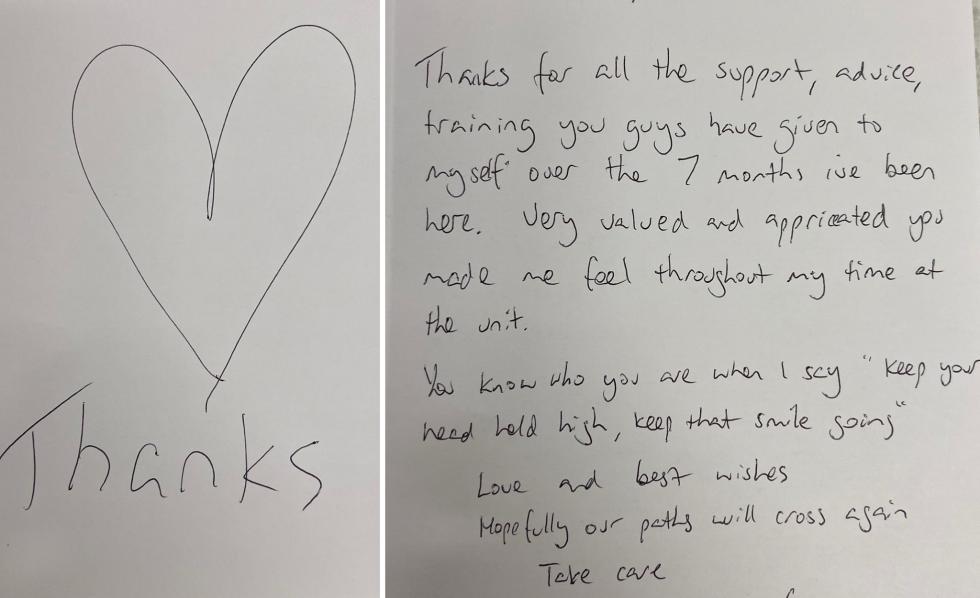 Thanks
Thanks for all the support, advice,
training you guys have given to
myself over the 7 months ive been
here. Very valued and appriceated you
made me feel throughout my time at
the unit.
You know who you are when I say "keep your
head held high, keep that smile going"
Love and best wishes
Hopefully our paths will cross again
Take care